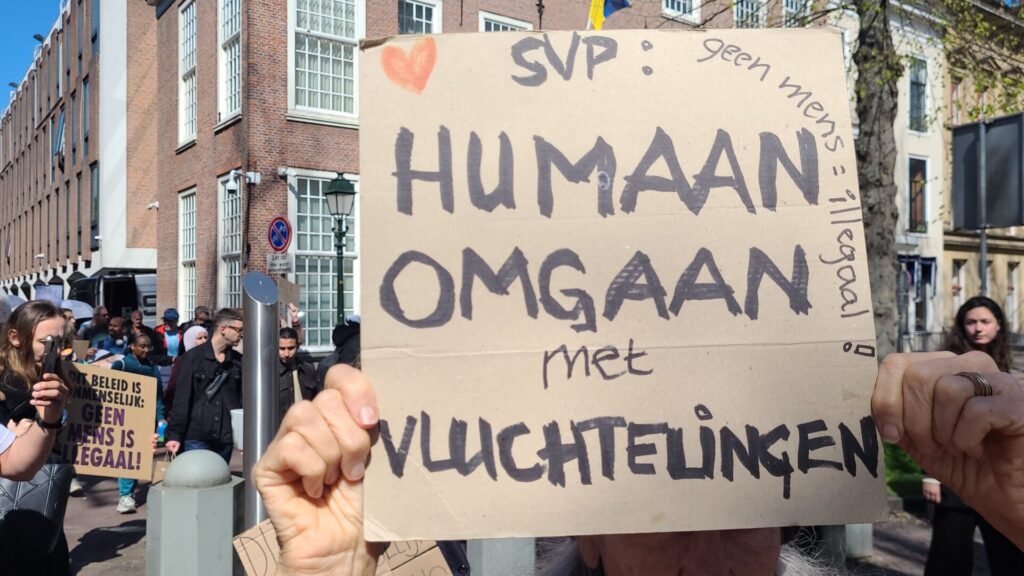 SVP:
geen mens = illegaal!
HUMAAN
OMGAAN
met
VLUCHTELINGEN
BELEID IS
ONMENSELIJK:
GEEN
MENS IS
ILLEGAAL!